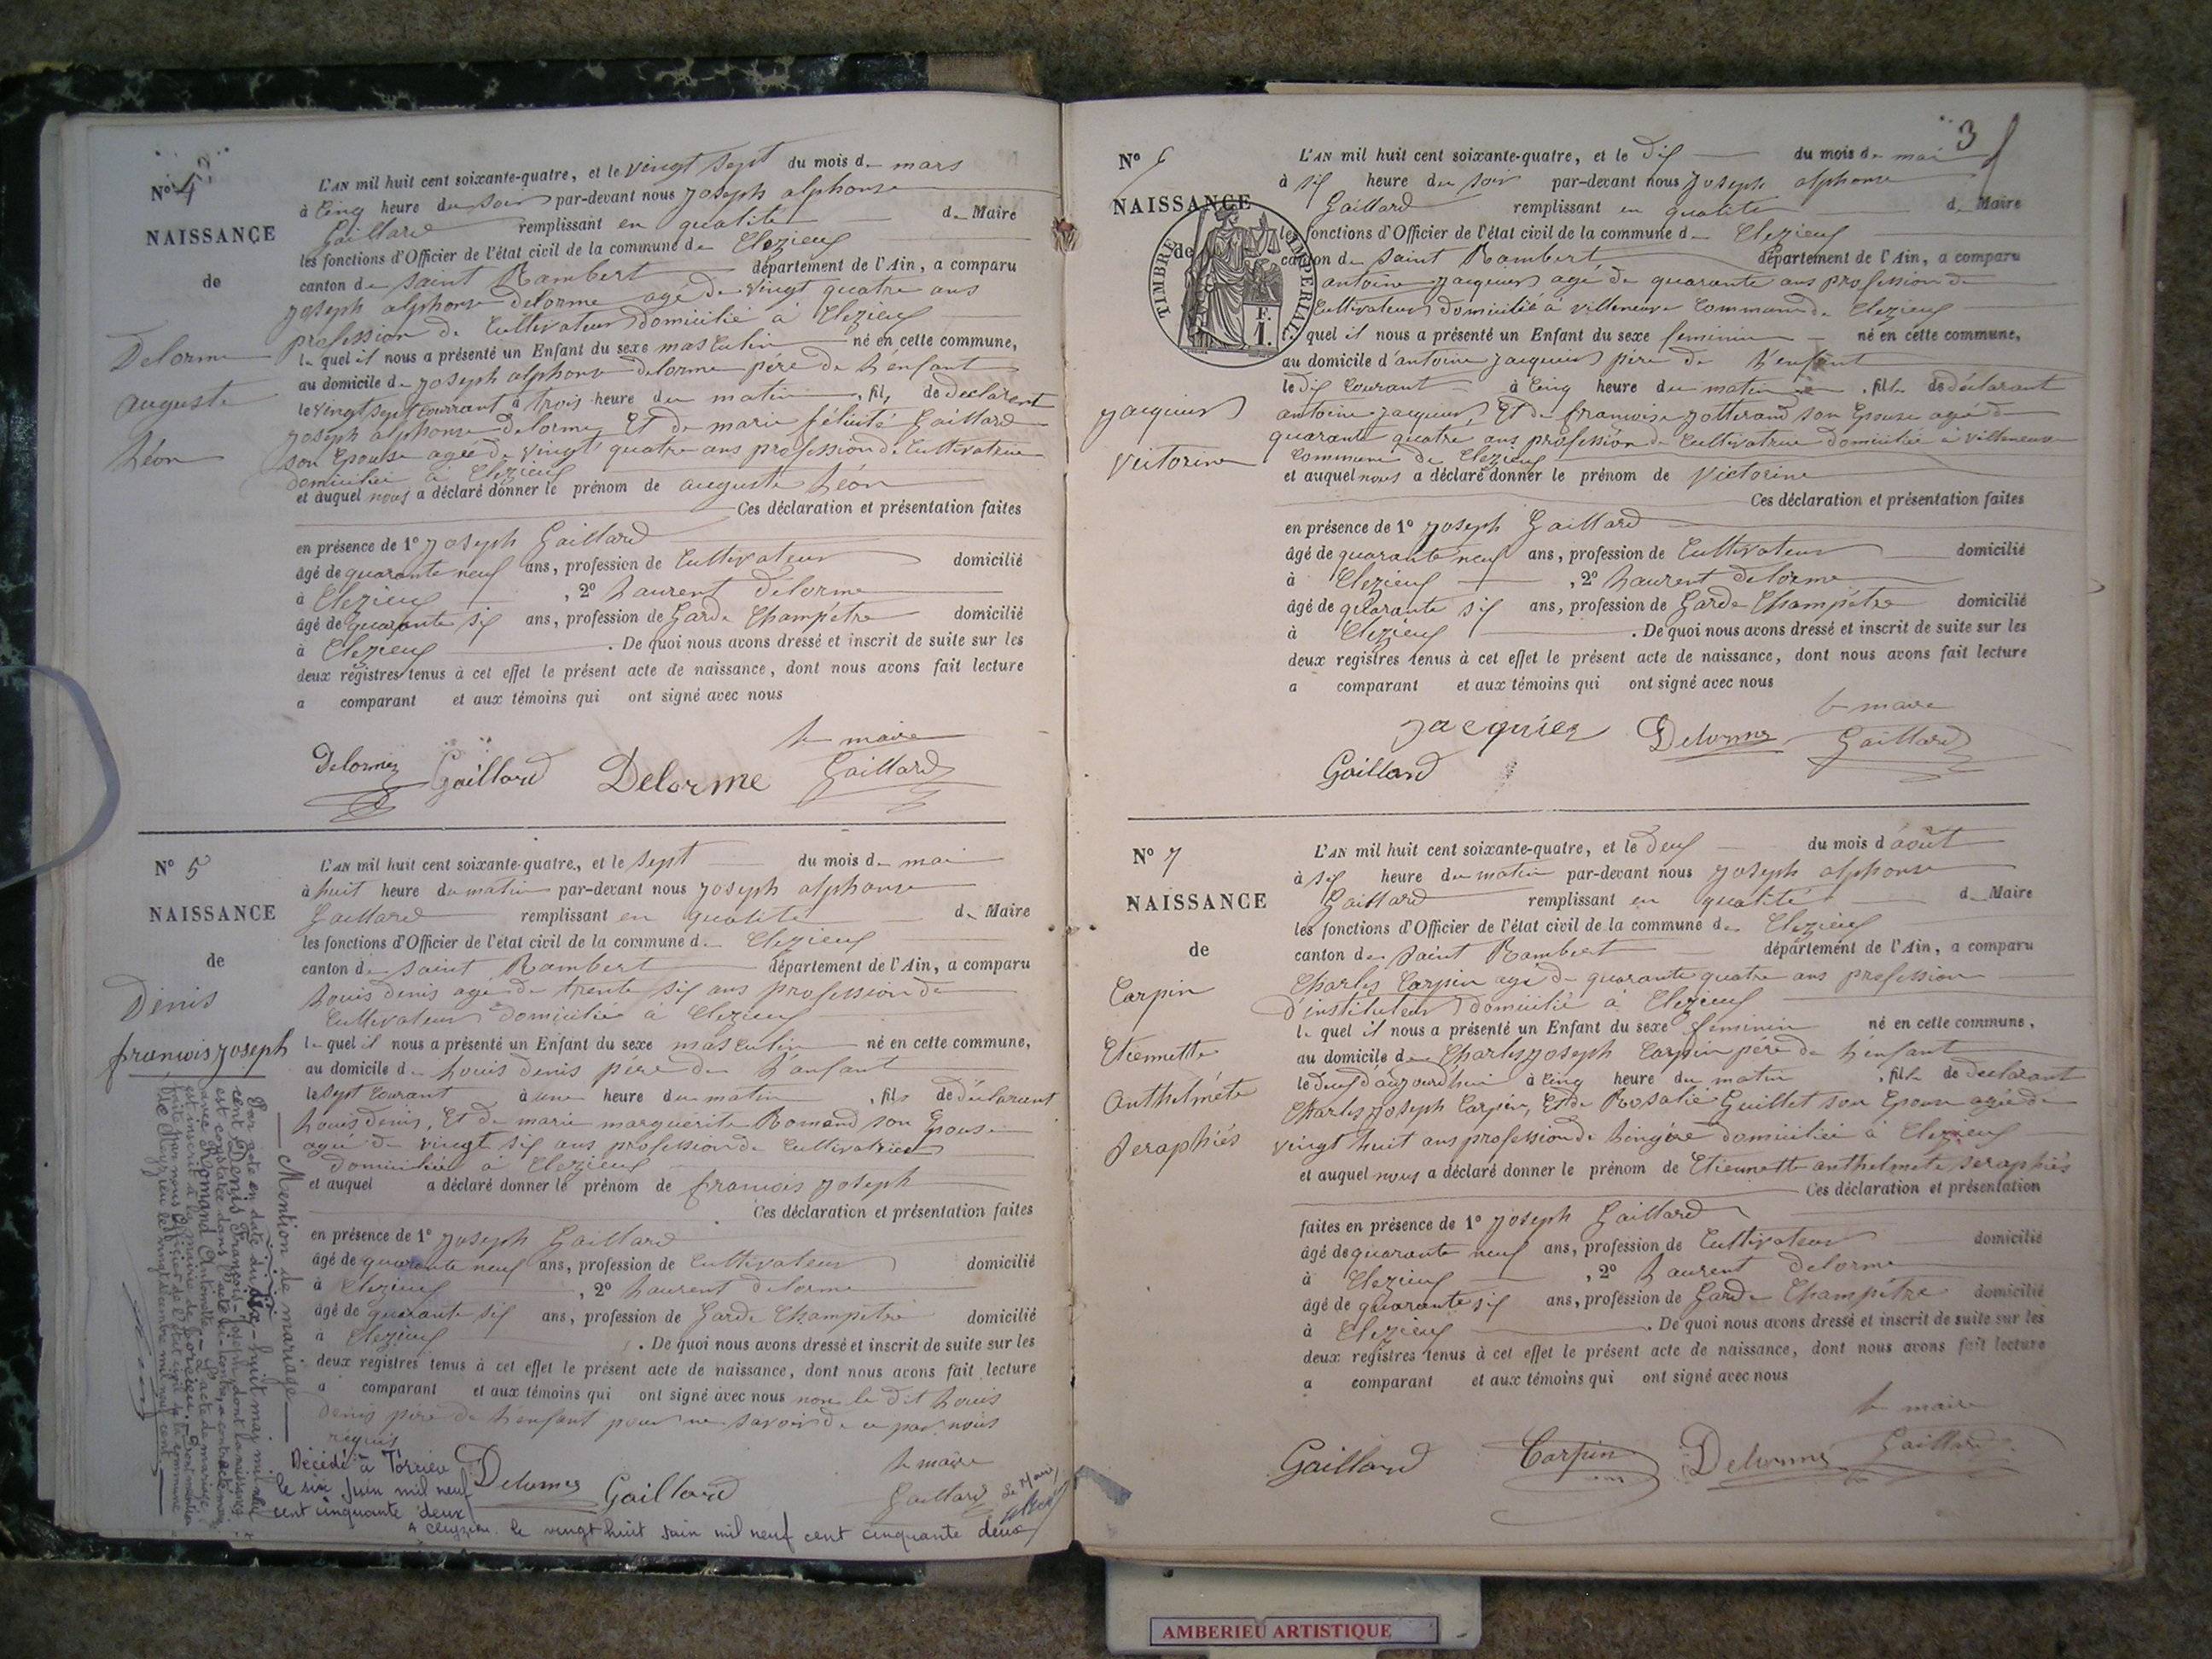 N° 4
NAISSANCE
de
Delorme
auguste
Léon
L'AN mil huit cent soixante-quatre, et le vingt sept du mois de mars
à cinq heure du soir par-devant nous Joseph alphonse
Gaillard remplissant en qualité de Maire
les fonctions d'Officier de l'état civil de la commune de Clezieux
canton de Saint Rambert département de l'Ain, a comparu
Joseph alphonse delorme agé de vingt quatre ans
profession de Cultivateur domicilié à Clezieux
le quel il nous a présenté un Enfant du sexe masculin né en cette commune,
au domicile de Joseph alphonse delorme père de l'enfant
le vingt sept courrant à trois heure du matin, fils de declarent
Joseph alphonse delorme, Et de marie félicité Gaillard
son Epouse agée de vingt quatre ans profession de Cultivatrice
domiciliée à Clezieux
et auquel nous a déclaré donner le prénom de auguste Léon
Ces déclaration et présentation faites
en présence de 1° Joseph Gaillard
âgé de quarante neuf ans, profession de Cultivateur domicilié
à Clezieux, 2° Laurent delorme
âgé de quarante six ans, profession de Garde Champétre domicilié
à Clezieux. De quoi nous avons dressé et inscrit de suite sur les
deux registres tenus à cet effet le présent acte de naissance, dont nous avons fait lecture
a comparant et aux témoins qui ont signé avec nous
le maire
Delorme Gaillard Delorme Gaillard
N° 5
NAISSANCE
de
Denis
francois Joseph
L'AN mil huit cent soixante-quatre, et le sept du mois de mai
à huit heure du matin par-devant nous Joseph alphonse
Gaillard remplissant en qualité de Maire
les fonctions d'Officier de l'état civil de la commune de Clezieux
canton de Saint Rambert département de l'Ain, a comparu
Louis denis agé de trente six ans profession de
Cultivateur domicilié à Clezieux
le quel il nous a présenté un Enfant du sexe masculin né en cette commune,
au domicile de Louis denis père de l'enfant
le sept courant à une heure du matin, fils de déclarent
Louis denis, Et de marie marguerite Romand son Epouse
agée de vingt six ans profession de Cultivatrice
domiciliée à Clezieux
et auquel a déclaré donner le prénom de francois Joseph
Ces déclaration et présentation faites
en présence de 1° Joseph Gaillard
âgé de quarante neuf ans, profession de Cultivateur domicilié
à Clezieux, 2° Laurent delorme
âgé de quarante six ans, profession de Garde Champétre domicilié
à Clezieux. De quoi nous avons dressé et inscrit de suite sur les
deux registres tenus à cet effet le présent acte de naissance, dont nous avons fait lecture
a comparant et aux témoins qui ont signé avec nous non le dit Louis
Denis père de l'enfant pour ne savoir de ce par nous
requis
le maire
Delorme Gaillard Gaillard
Mention de mariage
Par acte en date du dix-huit mai mil neuf
cent Denis François-Joseph dont la naissance
est constatée dans l'acte ci-contre a contracté mariage
avec Romand Antoinette. L'acte de mariage
est inscrit à la mairie de Torcieu. Dont mention
faite par nous Officier de l'état civil de la commune
de Cleyzieu le vingt décembre mil neuf cent
Décédé à Torcieu
le six juin mil neuf
cent cinquante deux
A Cleyzieu le vingt huit juin mil neuf cent cinquante deux
Le Maire,
3
N° 6
NAISSANCE
de
TIMBRE IMPERIAL
F.
1.
Jacquier
Victorine
L'AN mil huit cent soixante-quatre, et le dix du mois de mai
à six heure du soir par-devant nous Joseph alphonse
Gaillard remplissant en qualité de Maire
les fonctions d'Officier de l'état civil de la commune de Clezieux
canton de Saint Rambert département de l'Ain, a comparu
antoine Jacquier agé de quarante ans profession de
Cultivateur domicilié à villeneuve Commune de Clezieux
le quel il nous a présenté un Enfant du sexe feminin né en cette commune,
au domicile d'antoine Jacquier père de l'enfant
le dix courant à cinq heure du matin, fille de déclarant
antoine Jacquier, Et de francoise Jotterand son Epouse agée de
quarante quatre ans profession de Cultivatrice domiciliée à villeneuve
Commune de Clezieux
et auquel nous a déclaré donner le prénom de Victorine
Ces déclaration et présentation faites
en présence de 1° Joseph Gaillard
âgé de quarante neuf ans, profession de Cultivateur domicilié
à Clezieux, 2° Laurent delorme
âgé de quarante six ans, profession de Garde Champétre domicilié
à Clezieux. De quoi nous avons dressé et inscrit de suite sur les
deux registres tenus à cet effet le présent acte de naissance, dont nous avons fait lecture
a comparant et aux témoins qui ont signé avec nous
le maire
Jacquier Delorme Gaillard
Gaillard
N° 7
NAISSANCE
de
Carpin
Etiennette
Anthelmete
Seraphiés
L'AN mil huit cent soixante-quatre, et le deux du mois d'août
à six heure du matin par-devant nous Joseph alphonse
Gaillard remplissant en qualité de Maire
les fonctions d'Officier de l'état civil de la commune de Clezieux
canton de Saint Rambert département de l'Ain, a comparu
Charles Carpin agé de quarante quatre ans profession
d'instituteur domicilié à Clezieux
le quel il nous a présenté un Enfant du sexe féminin né en cette commune,
au domicile de Charles Joseph Carpin père de l'enfant
le deux d'aujourd'hui à cinq heure du matin, fille de declarant
Charles Joseph Carpin, Et de Rosalie Guillet son Epouse agée de
vingt huit ans profession de Lingère domiciliée à Clezieux
et auquel nous a déclaré donner le prénom de Etiennette anthelmete seraphiés
Ces déclaration et présentation
faites en présence de 1° Joseph Gaillard
âgé de quarante neuf ans, profession de Cultivateur domicilié
à Clezieux, 2° Laurent delorme
âgé de quarante six ans, profession de Garde Champétre domicilié
à Clezieux. De quoi nous avons dressé et inscrit de suite sur les
deux registres tenus à cet effet le présent acte de naissance, dont nous avons fait lecture
a comparant et aux témoins qui ont signé avec nous
le maire
Gaillard Carpin Delorme Gaillard
AMBERIEU ARTISTIQUE